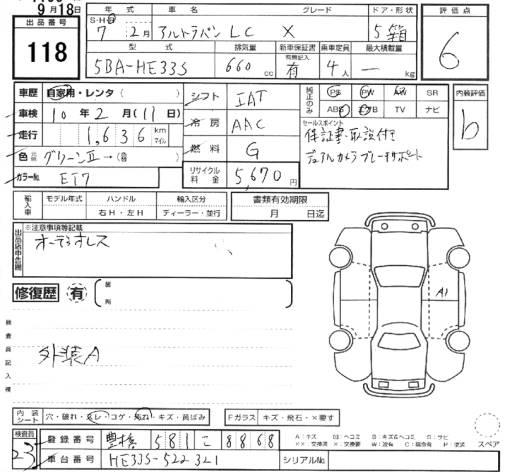 9月18日
出品番号
118
年式 車名 グレード ドア・形状
S・H・R 7 2月 アルトラパンLC X 5 箱
型式 排気量 新車保証書 乗車定員 最大積載量
5BA-HE33S 660cc 有 4人 ― kg
評価点
6
車歴 自家用・レンタ ( )
車検 10年2月(11日)
走行 1,636 km マイル
色 元色 グリーンⅡ→(替)
カラーNo. EI7
シフト IAT
冷房 AAC
燃料 G
リサイクル料金 5,670円
純正のみ
PS PW AW SR
ABS TV ナビ
セールスポイント
保証書・取説付
デュアルカメラブレーキサポート
内装評価
b
輸入車
モデル年式 ハンドル 輸入区分
右H・左H ディーラー・並行
書類有効期限
月 日迄
出品店申告欄
※注意事項等記載
オーディオレス
修復歴 有 箇所
検査員記入欄
外装A
A1
内装シート 穴・破れ・スレ・コゲ・汚れ・キズ・黄ばみ
Fガラス キズ・飛石・×要す
検査員
23
登録番号 豊橋 581 こ 8868
車台番号 HE33S-522321
シリアルNo.
スペア